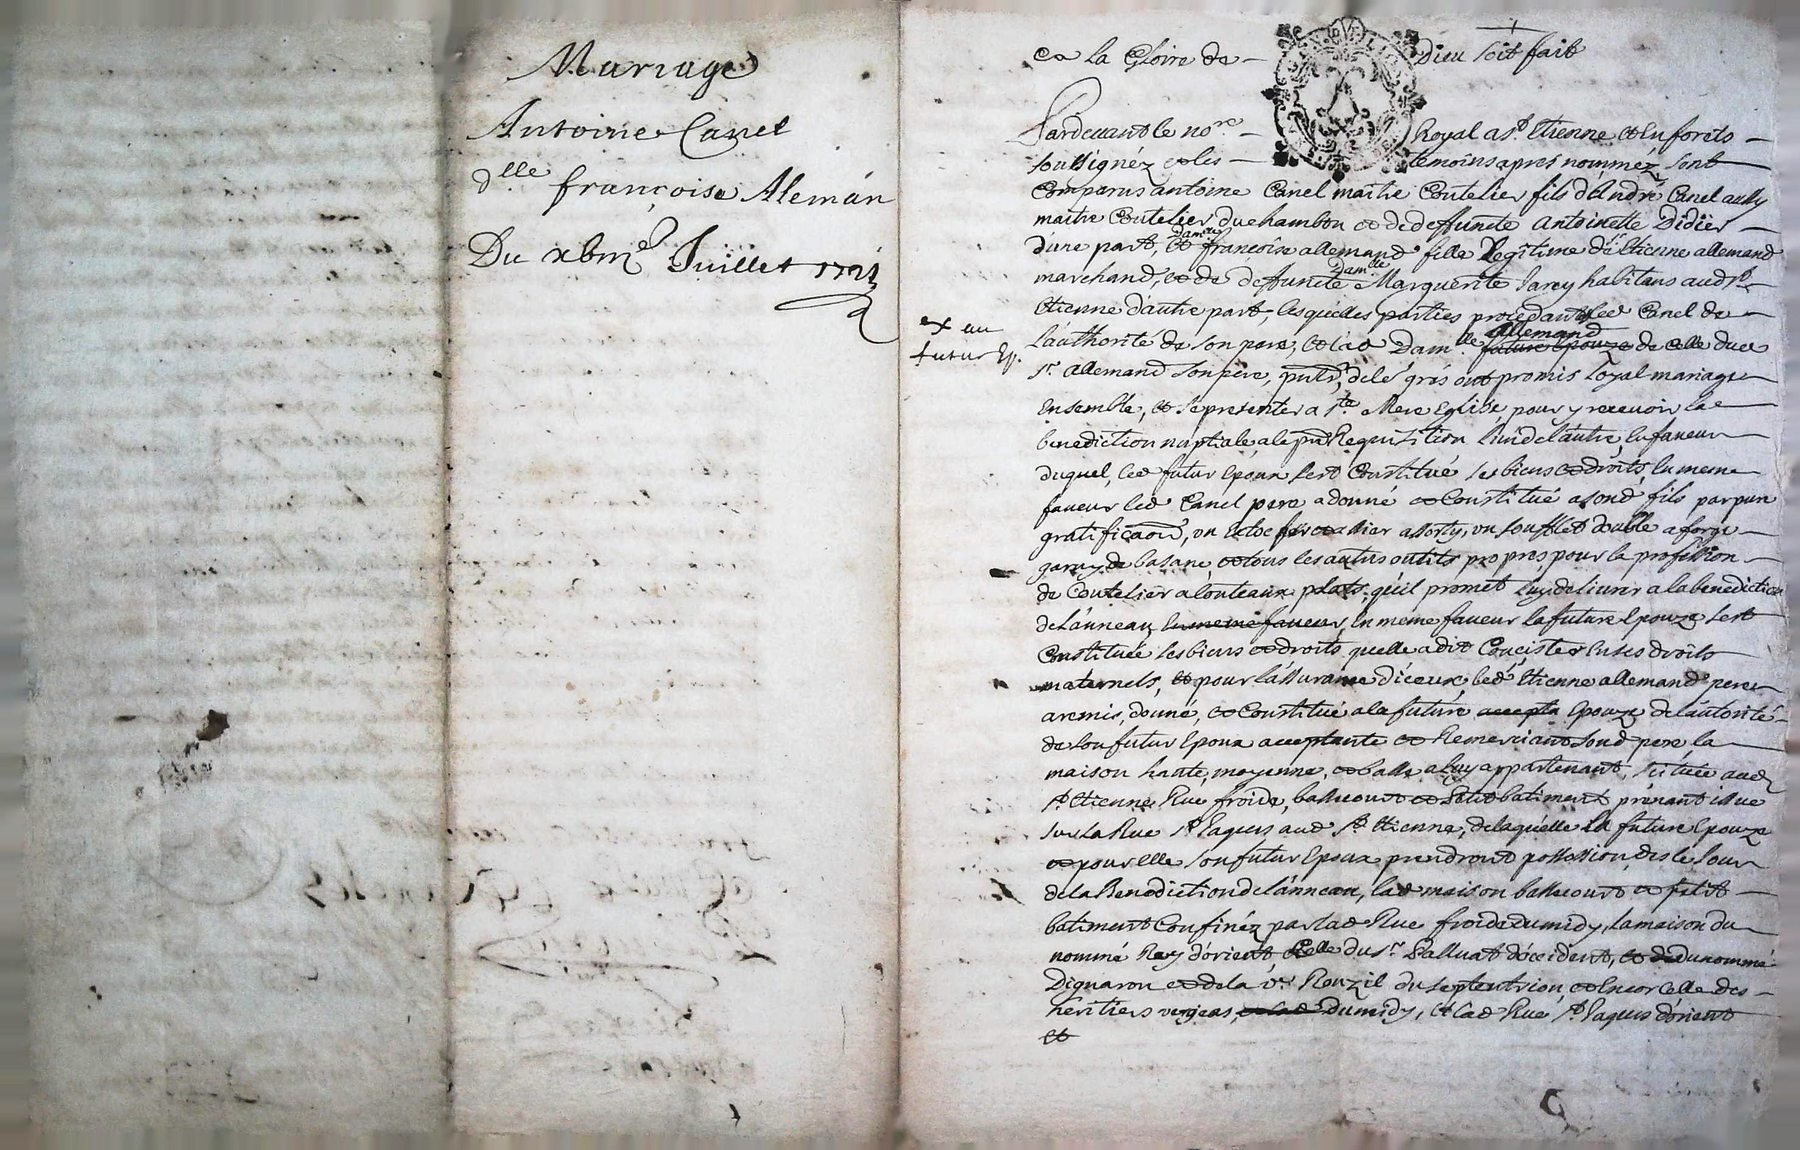 Mariage
Antoine Canel
dlle françoise Aleman
Du Juillet
A la Gloire de Dieu soit fait
Pardevant le nore Royal a St Etienne en forets
soussignéz et les temoins apres nomméz sont
comparus antoine Canel maitre Coutelier fils d'André Canel aussy
maitre Coutelier du chambon et de deffuncte antoinette Didier
d'une part, et damlle francoise allemand fille Legitime d'Etienne allemand
marchand, et de deffuncte damlle Marguerite Jarey habitans aud St
Etienne d'autre part, lesquelles parties procedants led Canel de
l'authorité de son pere, et lad Damlle allemand future Epouze de celle dud
Sr allemand son pere, de le gres ont promis loyal mariage
Ensemble, et se presenter a Ste Mere Eglise pour y recevoir la
benediction nuptiale a la Requisition l'un de l'autre En faveur
duquel, led futur Epoux s'est Constitué ses biens et droits, En meme
faveur led Canel pere a donné et Constitué a sond fils par pure
gratification, un assorty, un soufflet double a forge
garny de basane et tous les autres outils propres pour la profession
de Coutelier a Couteaux plats, qu'il promet luy delivrer a la benediction
de l'anneau, en meme faveur, En meme faveur la future Epouze s'est
Constituée ses biens et droits quelle a dit Concister en ses droits
maternels, et pour l'assurance d'iceux, led Etienne allemand pere
a remis, donné, et Constitué a la future accepta Epouze de l'autorité
de son futur Epoux acceptante et Remerciant sond pere, la
maison haute, moyenne, et basse a luy appartenant, scituée aud
St Etienne Rue froide, bassecourt et Petit batiment prenant issue
sur la Rue St Jaques aud St Etienne, de laquelle la future Epouze
et pour elle son futur Epoux prendront possession des le Jour
de la Benediction de l'anneau, lad maison bassecourt et petit
batiment Confinéz par lad Rue froide du midy, la maison du
nommé Rey d'orient Celle du Sr Palluat d'occident, et du nommé
Dignaron et de la ve Rouzil du septentrion et Encor celle des
heritiers verjeas, et lad du midy, et lad Rue St Jaques d'orient
et
ex au
futur Ep.